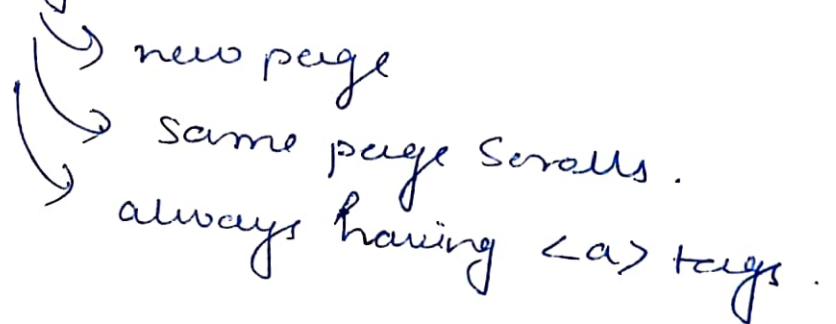 new page
same page scrolls.
always having <a> tags.